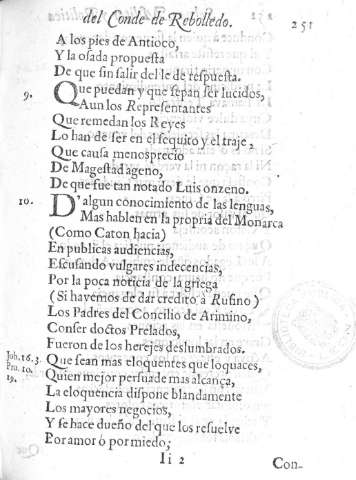 del Conde de Rebolledo. 251
A los pies de Antioco,
Y la osada propuesta
De que sin salir del le de respuesta.
9. Que puedan y que sepan ser lucidos,
Aun los Representantes
Que remedan los Reyes
Lo han de ser en el sequito y el traje,
Que causa menosprecio
De Magestad ageno,
De que fue tan notado Luis onzeno.
10. D'algun conocimiento de las lenguas,
Mas hablen en la propria del Monarca
(Como Caton hacia)
En publicas audiencias,
Escusando vulgares indecencias,
Por la poca noticia de la griega
(Si havemos de dar credito à Rufino)
Los Padres del Concilio de Arimino,
Conser doctos Prelados,
Fueron de los herejes deslumbrados.
Job. 16. 3. Que sean mas eloquentes que loquaces,
Pro. 10. 19. Quien mejor persuade mas alcança,
La eloquencia dispone blandamente
Los mayores negocios,
Y se hace dueño del que los resuelve
Por amor ó por miedo;
Ii 2 Con-